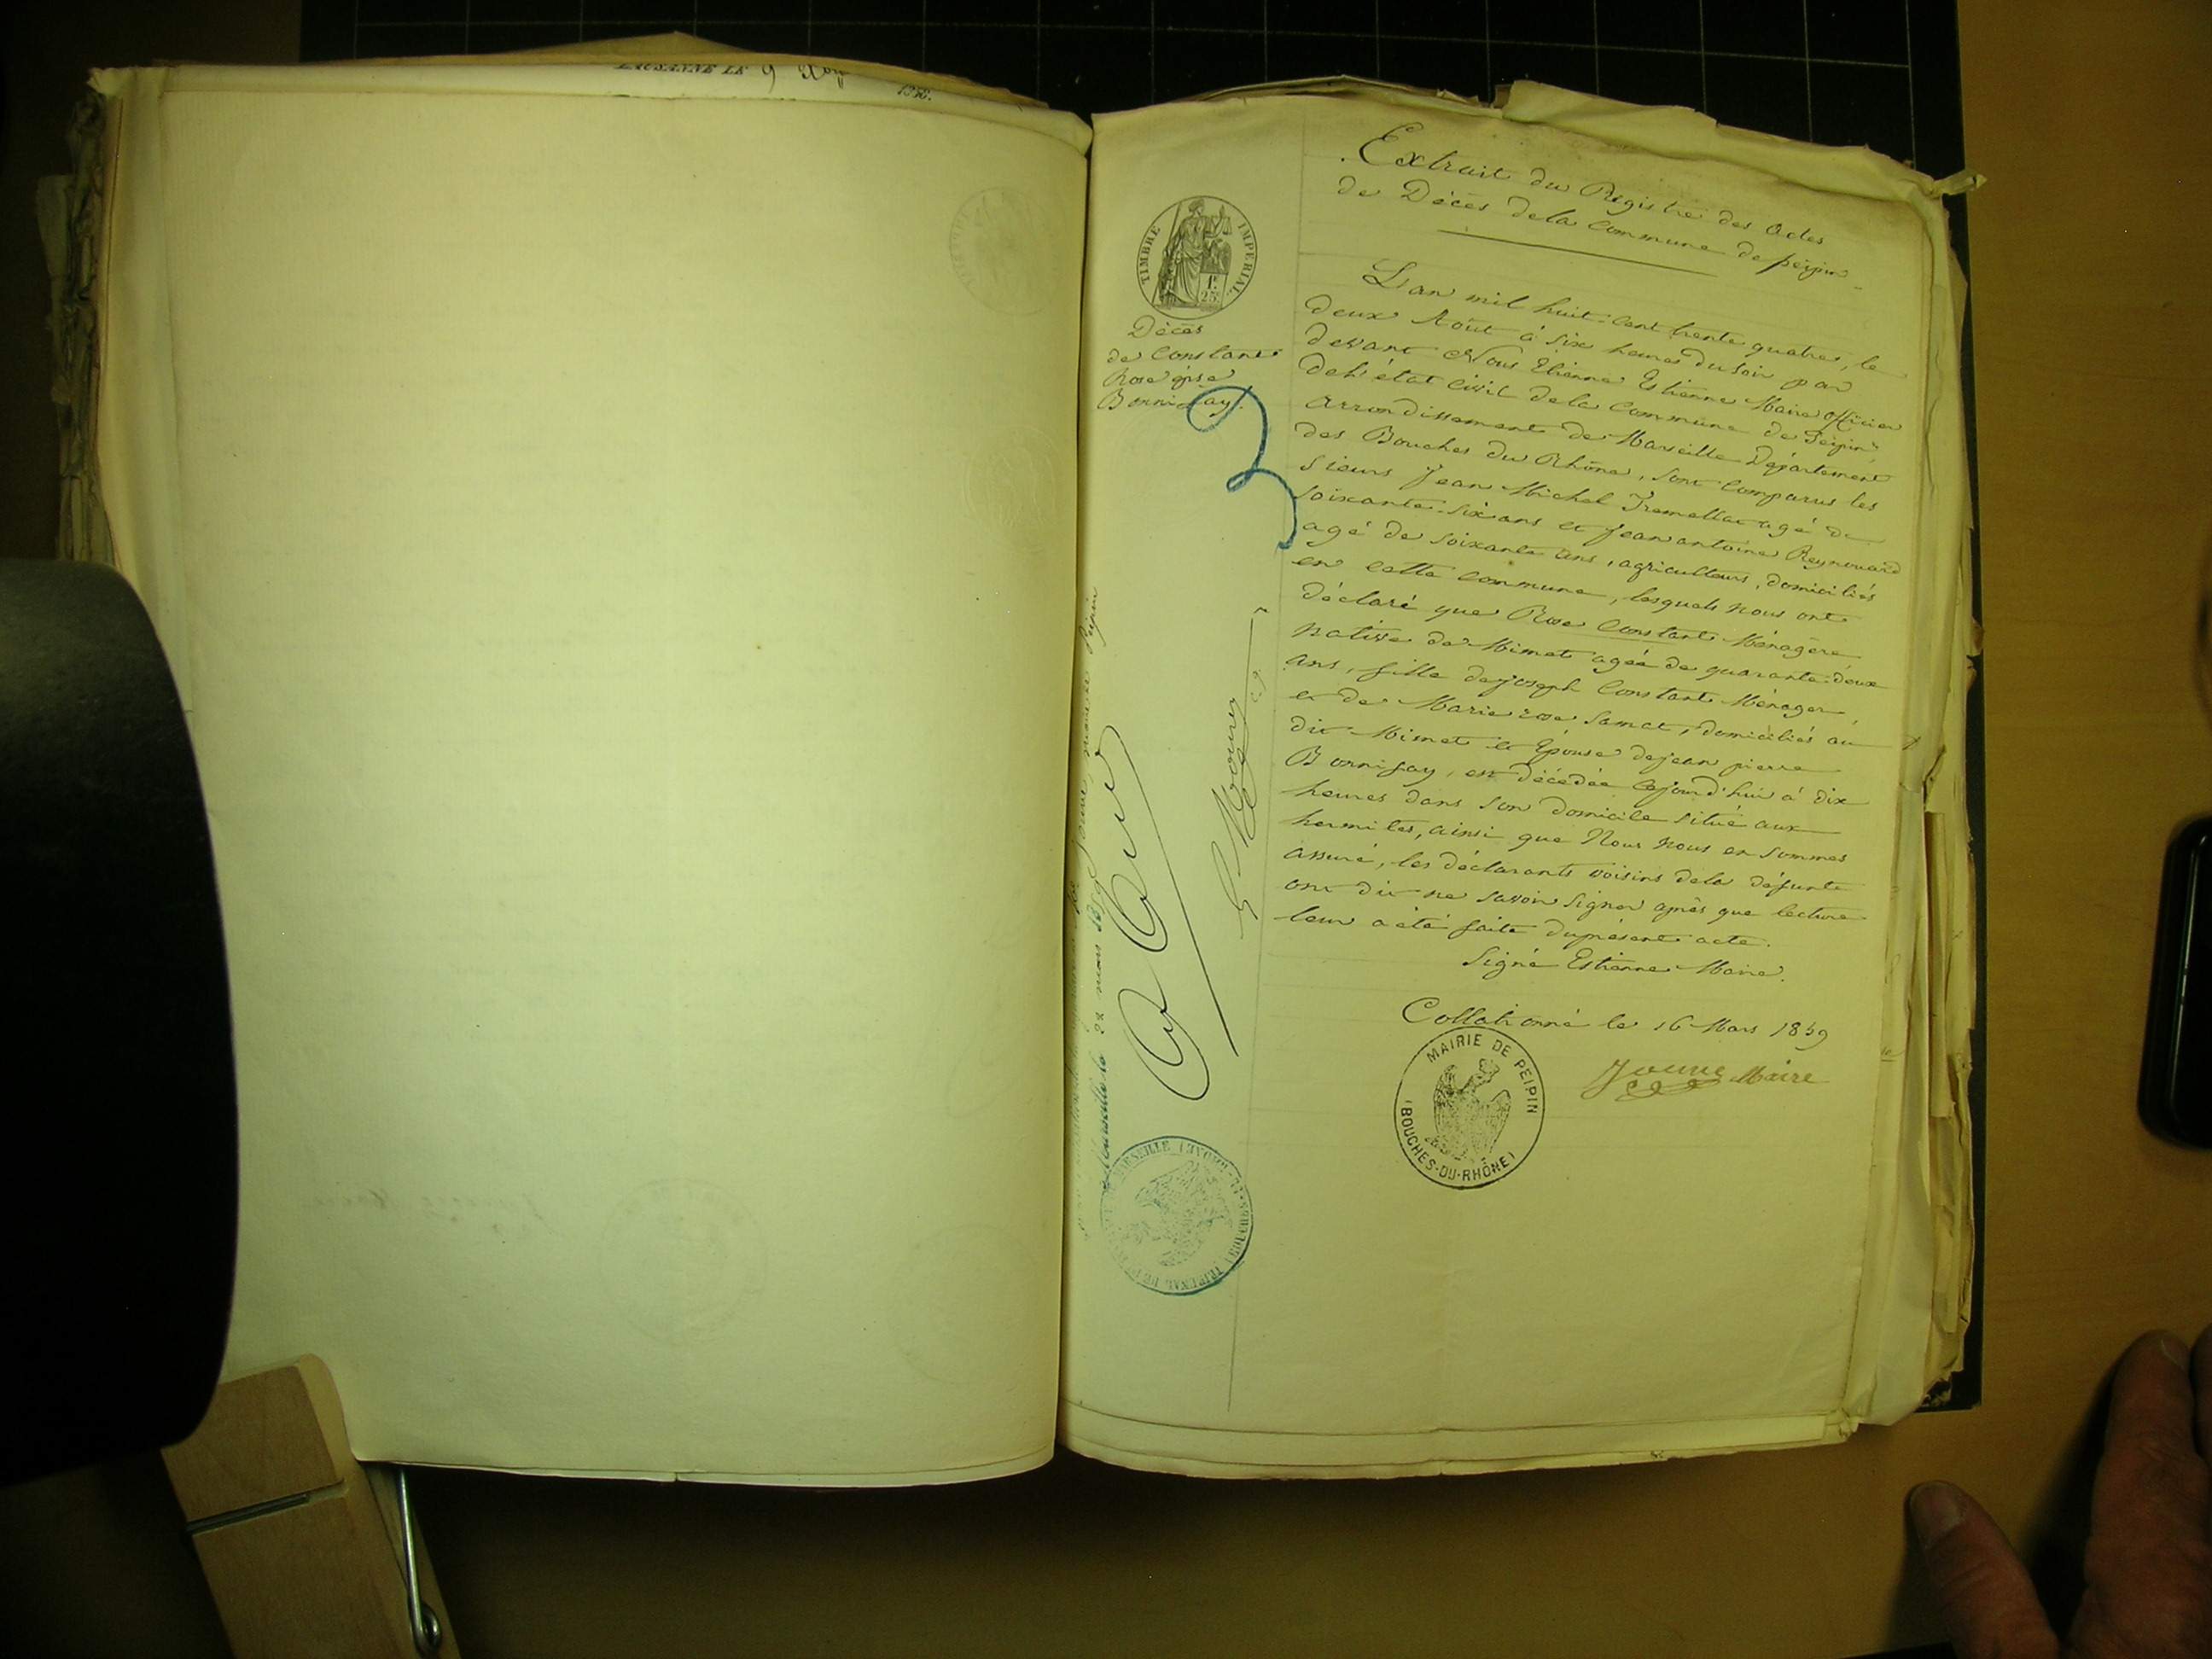 LAUSANNE LE 9
Extrait du Registre des Actes
de Décès dela Commune de peipin
TIMBRE IMPERIAL
1f. 25c
Décès
de Constant
Rose épse
Bonnifay.
L'an mil huit-cent trente quatre, le
deux Août à six heures du soir par
devant Nous Etienne Estienne Maire officier
del'état civil dela Commune de Peipin,
arrondissement de Marseille Département
des Bouches du Rhône, sont comparus les
sieurs Jean Michel Tremellat agé de
soixante-six ans et Jean antoine Reynouard
agé de soixante ans, agriculteurs, domiciliés
en cette commune, lesquels nous ont
déclaré que Rose Constant Ménagère
native de Mimet agée de quarante-deux
ans, fille dejoseph Constant Ménager,
et de Marie rose Samat, domiciliés au
dit Mimet et Epouse dejean pierre
Bonnifay, est décédée cejourd'hui à dix
heures dans son domicile situé aux
hermites, ainsi que Nous nous en sommes
assuré, les déclarants voisins dela défunte
ont dit ne savoir signer après que lecture
leur a été faite duprésent acte.
Signé Estienne Maire.
Collationné le 16 Mars 1859
Jouve Maire
MAIRIE DE PEIPIN
(BOUCHES-DU-RHÔNE)
Peipin
Marseille le 22 mars 1859
MARSEILLE (BOUCHES-DU-RHONE) TRIBUNAL DE